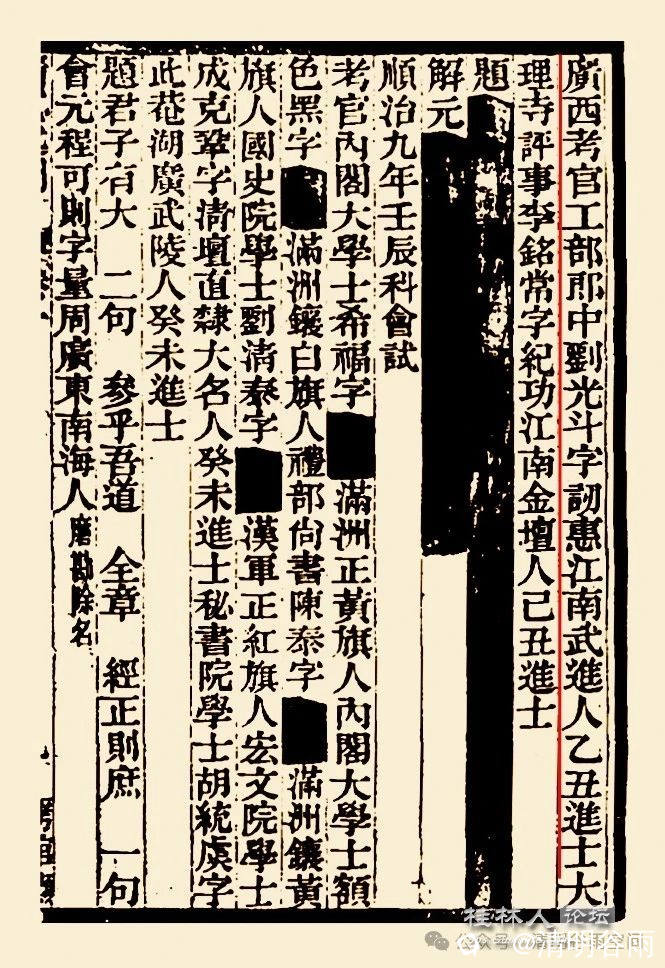 廣西考官工部郎中劉光斗字訒惠江南武進人乙丑進士大
理寺評事李銘常字紀功江南金壇人己丑進士
題
解元
順治九年壬辰科會試
考官內閣大學士希福字 滿洲正黃旗人內閣大學士額
色黑字 滿洲鑲白旗人禮部尙書陳泰字 滿洲鑲黃
旗人國史院學士劉清泰字 漢軍正紅旗人宏文院學士
成克鞏字淸壇直隸大名人癸未進士秘書院學士胡統虞字
此菴湖廣武陵人癸未進士
題君子有大 二句 參乎吾道 全章 經正則庶 一句
會元程可則字量周廣東南海人磨勘除名
桂林人论坛
公众号
清明谷雨
雨空间